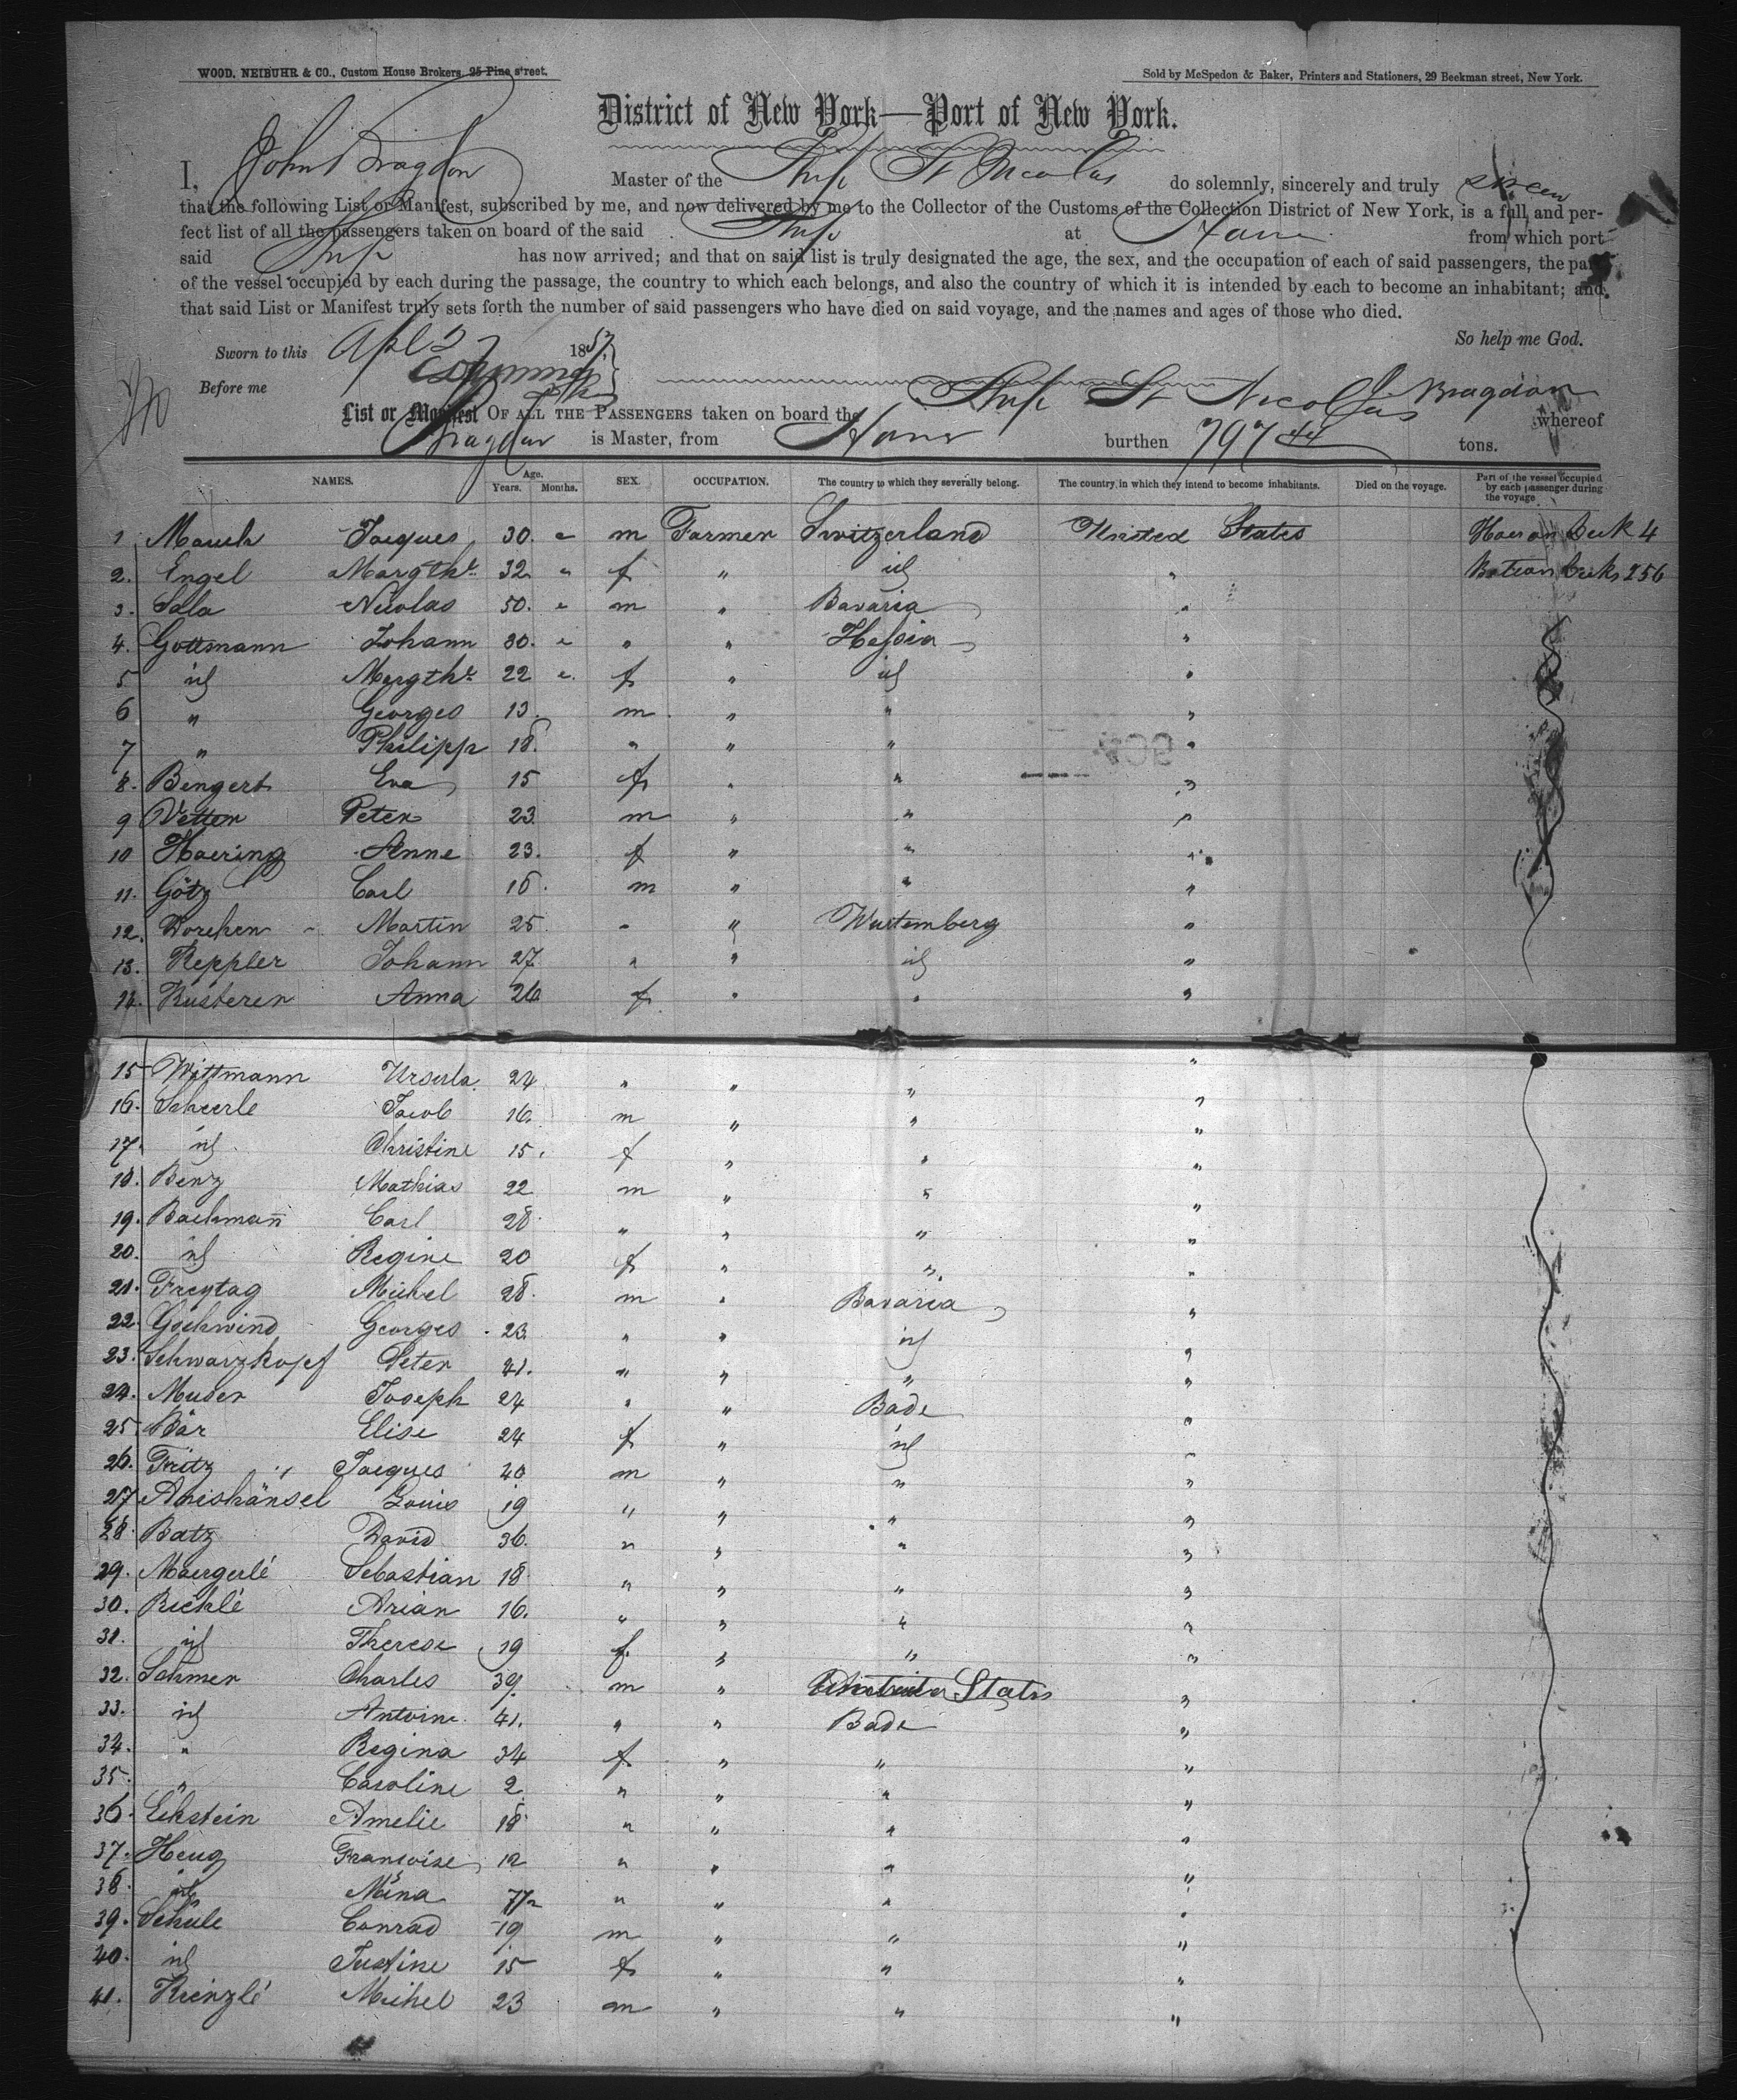 WOOD, NEIBUHR & CO., Custom House Brokers, 25 Pine street.
Sold by McSpedon & Baker, Printers and Stationers, 29 Beekman street, New York.
District of New York—Port of New York.
I, John Bragdon Master of the Ship St Nicolas do solemnly, sincerely and truly swear
that the following List or Manifest, subscribed by me, and now delivered by me to the Collector of the Customs of the Collection District of New York, is a full and per-
fect list of all the passengers taken on board of the said Ship at Havre from which port
said Ship has now arrived; and that on said list is truly designated the age, the sex, and the occupation of each of said passengers, the part
of the vessel occupied by each during the passage, the country to which each belongs, and also the country of which it is intended by each to become an inhabitant; and
that said List or Manifest truly sets forth the number of said passengers who have died on said voyage, and the names and ages of those who died.
So help me God.
Sworn to this Apl 27 1857
Before me
J Bragdon
List or Manifest OF ALL THE PASSENGERS taken on board the Ship St Nicolas whereof
Bragdon is Master, from Havre burthen 797 44 tons.
NAMES. Age. Years. Months. SEX. OCCUPATION. The country to which they severally belong. The country in which they intend to become inhabitants. Died on the voyage. Part of the vessel occupied by each passenger during the voyage
1 Mauch Jacques 30. " m Farmer Switzerland United States Deck 4
2. Engel Margthe. 32. " f " id " 256
3. Sala Nicolas 50. " m " Bavaria "
4. Gottmann Johann 30. " " " Hessia "
5 id Margthe. 22 " f " id "
6 " Georges 13. m " " "
7 " Philipp 18. " " " "
8. Bengert Eva 15 f " " "
9 Vetter Peter 23. m " " "
10 Haering Anne 23. f " " "
11. Götz Carl 16. m " " "
12. Dorchen Martin 25. " " Wurtemberg "
13. Keppler Johann 27 " " id "
14. Kusterer Anna 26 f " " "
15 Wittmann Ursula 24 " " " "
16. Scheerle Jacob 16. m " " "
17. id Christine 15. f " " "
18. Benz Mathias 22 m " " "
19. Bachmann Carl 28. " " " "
20. id Regine 20 f " " "
21. Freytag Michel 28. m " Bavaria "
22. Gschwind Georges 23. " " id "
23. Schwarzkopf Peter 41. " " " "
24. Muser Joseph 24 " " Bade "
25. Bär Elise 24 f " id "
26. Fritz Jacques 40 m " " "
27 Anishänsel Louis 19 " " " "
28. Batz David 36. " " " "
29. Maergerlé Sebastian 18 " " " "
30. Richlé Arian 16. " " " "
31. id Therese 19 f. " " "
32. Sohmer Charles 39. m " United States "
33. id Antoine 41. " " Bade "
34. " Regina 34 f. " " "
35. " Caroline 2 " " " "
36. Eckstein Amelie 18. " " " "
37. Heug Francoise 12 " " " "
38. id Mina " " " "
39. Schüle Conrad 19 m " " "
40. id Justine 15 f " " "
41. Kienzlé Michel 23 m " " "